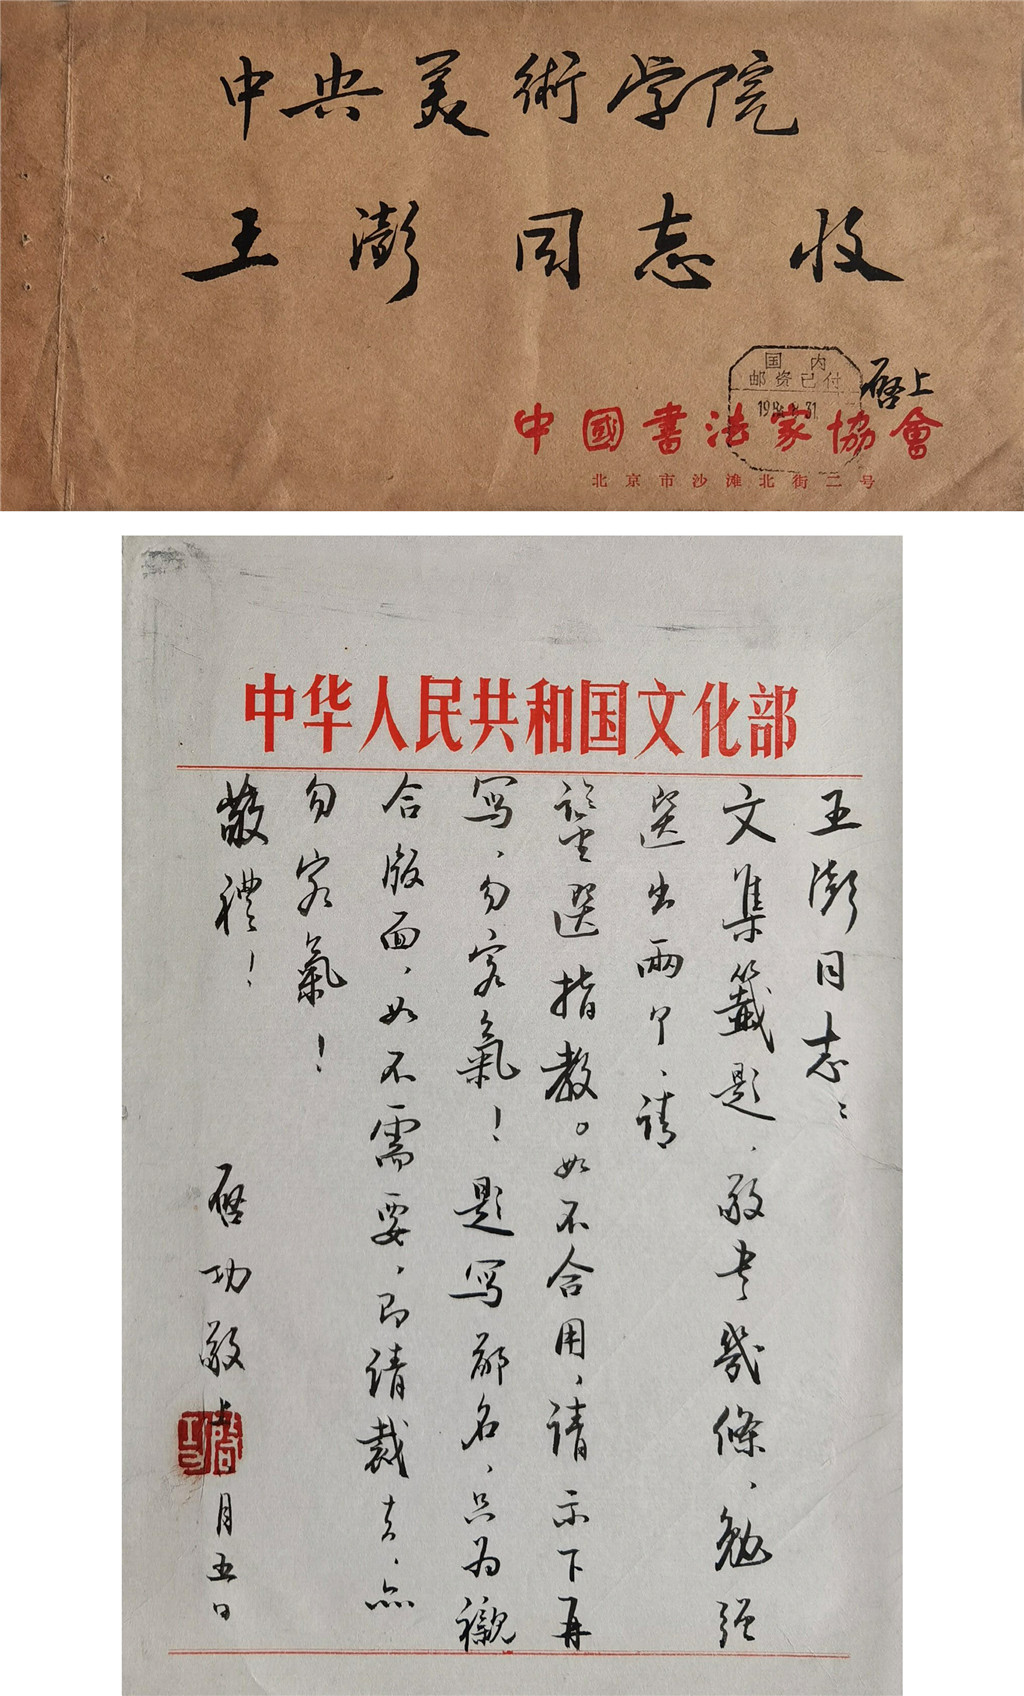 中央美術学院
王澎同志收
国内
邮资已付
启上
中國書法家協會
北京市沙滩北街二号
中华人民共和国文化部
王澎同志：
文集籤题，敬书幾條，勉强
选出兩个，请
鉴選指教。如不合用，请示下再
写，勿客氣！题写鄙名，只为襯
合版面，如不需要，即请裁去，亦
勿客氣！
敬禮！
启功敬上
月五日